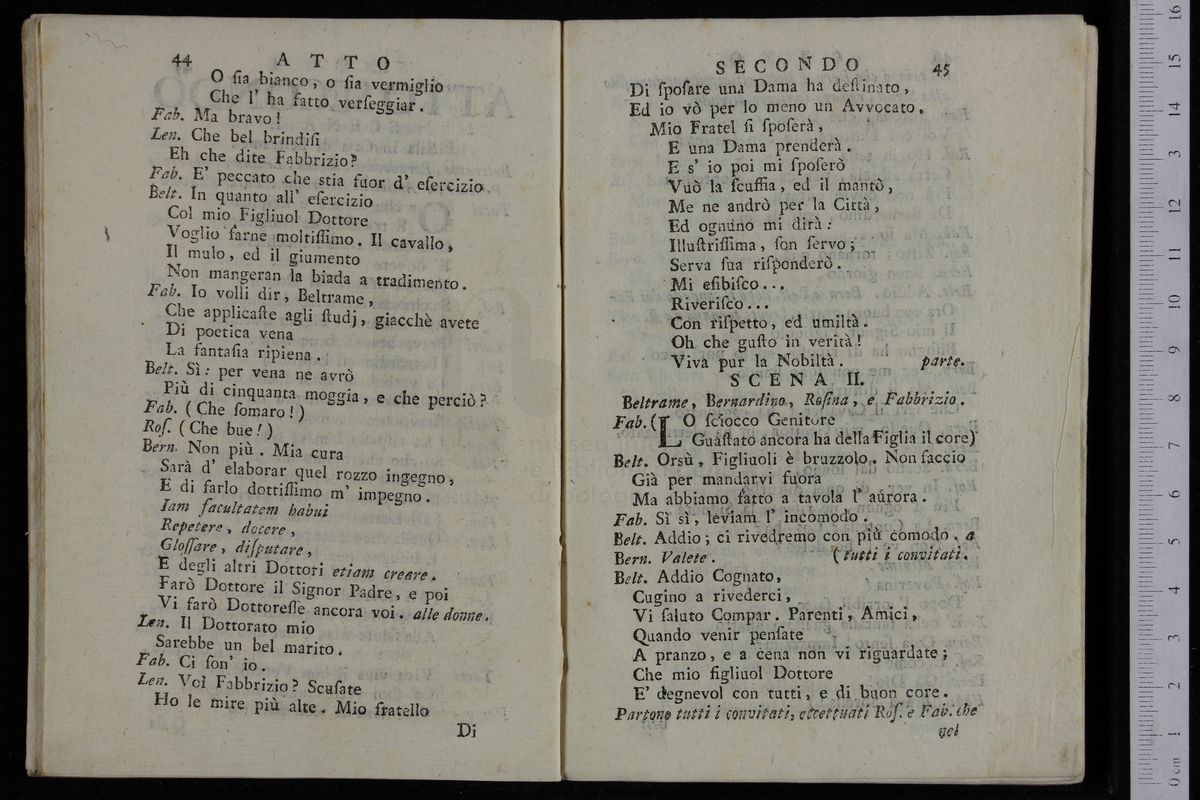 44 ATTO
O ſia bianco, o ſia vermiglio
Che l' ha fatto verſeggiar.
Fab. Ma bravo!
Len. Che bel brindiſi
Eh che dite Fabbrizio?
Fab. E' peccato che stia fuor d' eſercizio.
Belt. In quanto all' eſercizio
Col mio Figliuol Dottore
Voglio farne moltiſſimo. Il cavallo,
Il mulo, ed il giumento
Non mangeran la biada a tradimento.
Fab. Io volli dir, Beltrame,
Che applicaſte agli ſtudj, giacchè avete
Di poetica vena
La fantaſia ripiena.
Belt. Sì: per vena ne avrò
Più di cinquanta moggia, e che perciò?
Fab. (Che ſomaro!)
Roſ. (Che bue!)
Bern. Non più. Mia cura
Sarà d' elaborar quel rozzo ingegno,
E di farlo dottiſſimo m' impegno.
Iam facultatem habui
Repetere, docere,
Gloſſare, diſputare,
E degli altri Dottori etiam creare.
Farò Dottore il Signor Padre, e poi
Vi farò Dottoreſſe ancora voi. alle donne.
Len. Il Dottorato mio
Sarebbe un bel marito.
Fab. Ci ſon' io.
Len. Voi Fabbrizio? Scuſate
Ho le mire più alte. Mio fratello
Di
SECONDO 45
Di ſpoſare una Dama ha deſtinato,
Ed io vò per lo meno un Avvocato.
Mio Fratel ſi ſpoſerà,
E una Dama prenderà.
E s' io poi mi ſpoſerò
Vuò la ſcuffia, ed il mantò,
Me ne andrò per la Città,
Ed ognuno mi dirà:
Illuſtriſſima, ſon ſervo;
Serva ſua riſponderò.
Mi eſibiſco...
Riveriſco...
Con riſpetto, ed umiltà.
Oh che guſto in verità!
Viva pur la Nobiltà. parte.
SCENA II.
Beltrame, Bernardino, Roſina, e Fabbrizio.
Fab. (LO ſciocco Genitore
Guaſtato ancora ha della Figlia il core)
Belt. Orsù, Figliuoli è bruzzolo. Non faccio
Già per mandarvi fuora
Ma abbiamo fatto a tavola l' aurora.
Fab. Sì sì, leviam l' incomodo.
Belt. Addio; ci rivedremo con più comodo. a
Bern. Valete. (tutti i convitati.
Belt. Addio Cognato,
Cugino a rivederci,
Vi ſaluto Compar. Parenti, Amici,
Quando venir penſate
A pranzo, e a cena non vi riguardate;
Che mio figliuol Dottore
E' degnevol con tutti, e di buon core.
Partono tutti i convitati, eccettuati Roſ. e Fab. che
nel